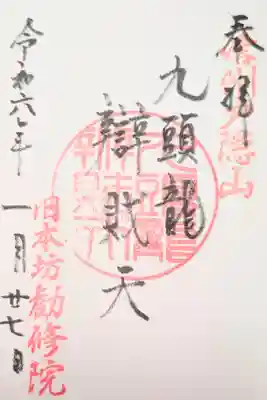 奉拝
信州戸隠山
九頭龍
辯財天
令和六年
一月廿七日
旧本坊勧修院